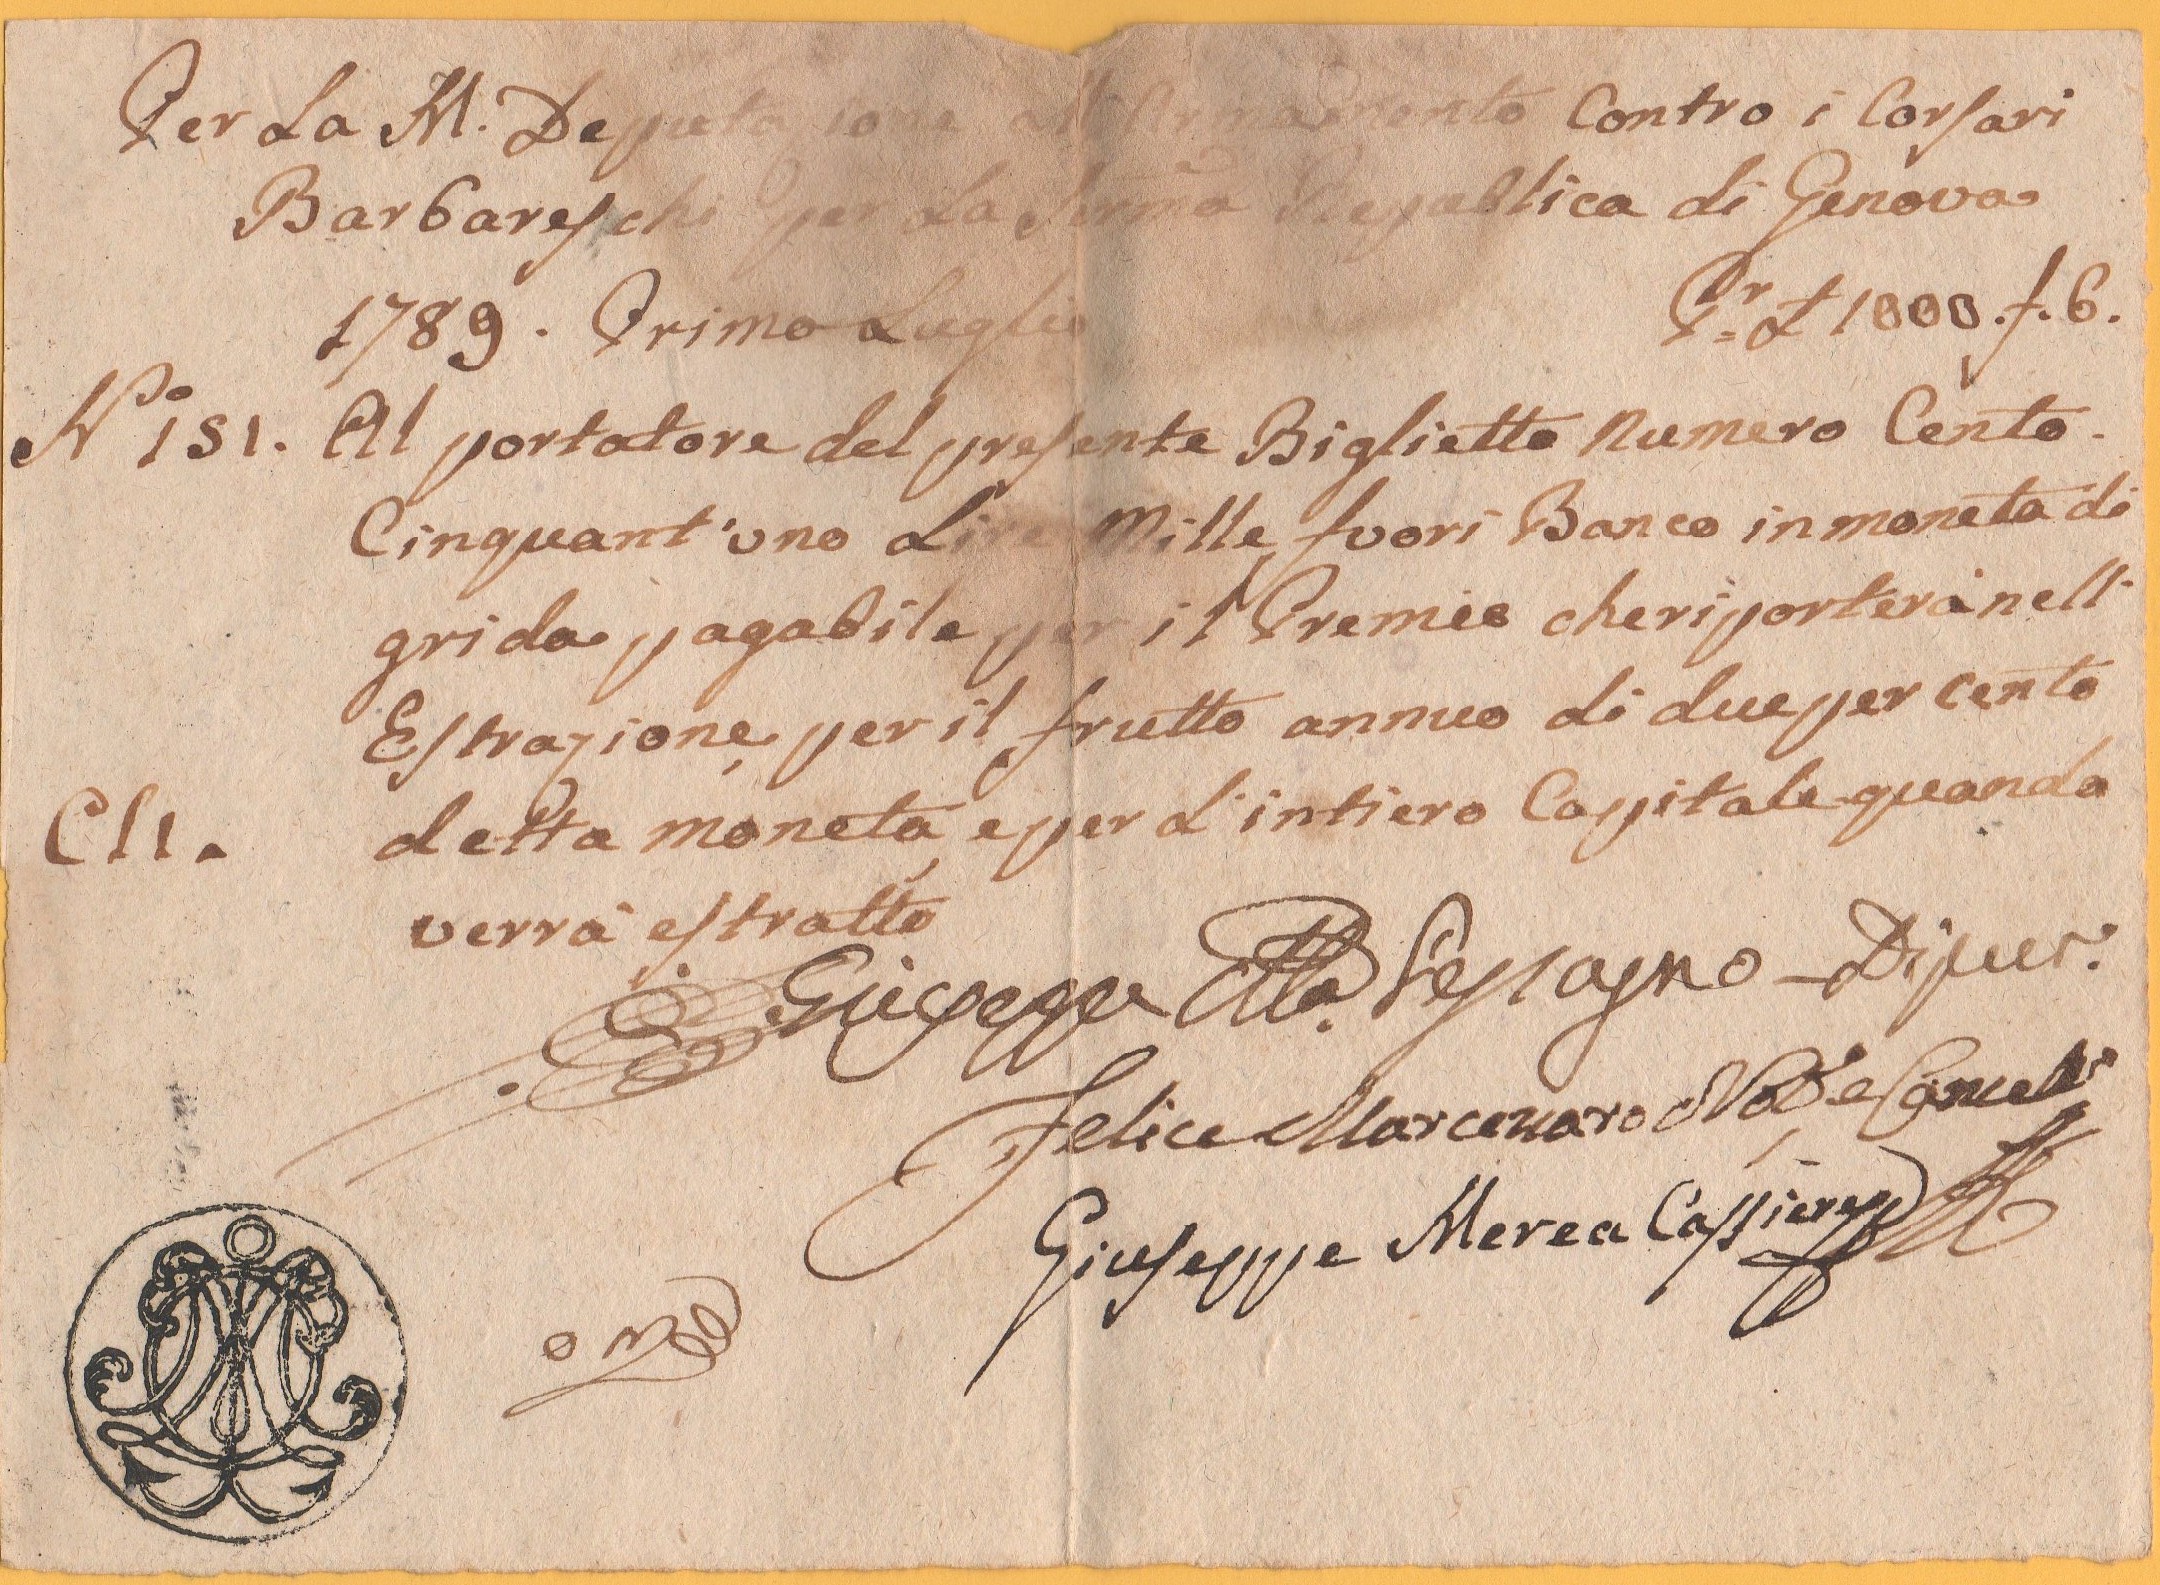 Per La M. Deputazione all'Armamento Contro i Corsari
Barbareschi per La Serma Republica di Genova
1789. Primo Luglio Pr. £ 1000. f. B.
No. 151. Al portatore del presente Biglietto Numero Cento
Cinquant'uno Lire Mille fuori Banco in moneta di
grida pagabile per il Premio che riporterà nell'
Estrazione, per il frutto annuo di due per cento
detta moneta, e per L'intiero Cappitale quando
verrà estratto
CLI.
Giuseppe
Felice Marcenaro Not.o e Cancell.e
Giuseppe Merea Cassiere